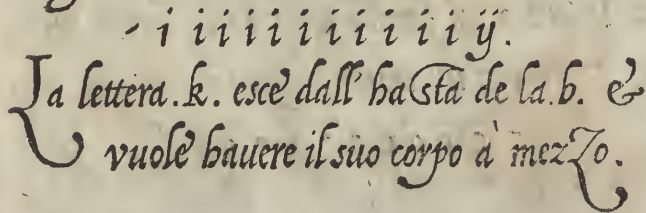 - i i i i i i i i i i i ij.
La lettera .k. esce dall' hasta de la .b. &
vuole hauere il suo corpo à mezzo.